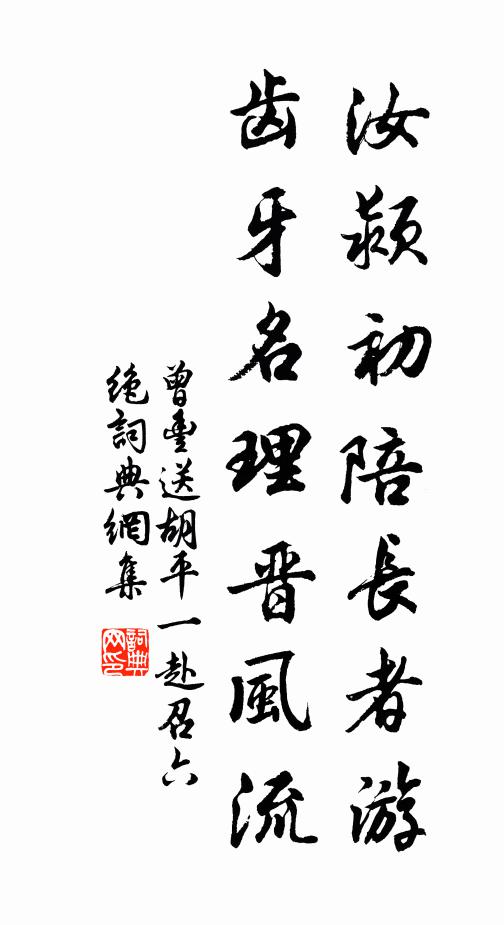 汝潁初陪長者游
齿牙名理晋風流
曾豊送胡平一赴召六
絶詞典網集
詞典
网印